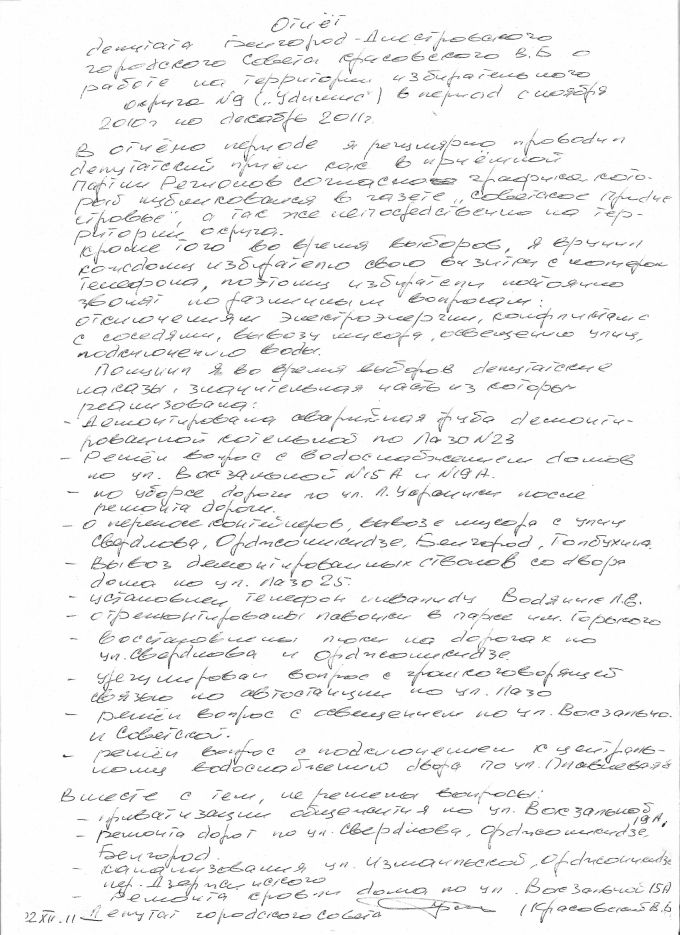 Отчёт
депутата Белгород-Днестровского
городского Совета Красовского В.Б о
работе на территории избирательного
округа №9 („Удичнс") в период с ноября
2010г по декабрь 2011г.
В отчёно периоде я регулярно проводил
депутатский приём как в приёмной
Партии Регионов согласно графика кото-
рый публиковался в газете „Советское Придне
стровье" а так же непосредственно на тер-
ритории округа.
Кроме того во время выборов, я вручил
каждому избирателю свою визитку с номером
телефона, поэтому избиратели постоянно
звонят по различным вопросам:
отключениям электроэнергии, конфликтам с
с соседями, вывозу мусора, освещению улиц,
подключению воды.
Получил я во время выборов депутатские
наказы, значительная часть из которых
реализована:
- Демонтирована аварийная труба демонти-
рованной котельной по Лазо №23
- Решён вопрос с водоснабжением домов
по ул. Вокзальной №15А и №19А.
- по уборке дороги по ул. Л.Украинки после
ремонта дороги.
- о переносе контейнеров, вывозе мусора с улиц
Свердлова, Орджоникидзе, Белгород, Толбухина.
- Вывоз демонтированных стволов со двора
дома по ул. Лазо 25.
- установлен телефон инвалиду Л.В.
- отремонтированы лавочки в парке им. Горького
- восстановлены люки на дорогах по
ул. Свердлова и Орджоникидзе.
- урегулирован вопрос с громкоговорящей
связью по автостанции по ул. Лазо
- решён вопрос с освещением по ул. Вокзально.
и Советской.
- решён вопрос с подключением к централь-
ному водоснабжению двора по ул.
Вместе с тем, не решены вопросы:
- приватизации общежития по ул. Вокзальной 19А,
- ремонта дорог по ул. Свердлова, Орджоникидзе,
Белгород
- канализования ул. Измаильской, Орджоникидзе
пер. Дзержинского
- Ремонта кровли дома по ул. Вокзальной 15А
02.XII.11 Депутат городского совета (Красовский В.Б